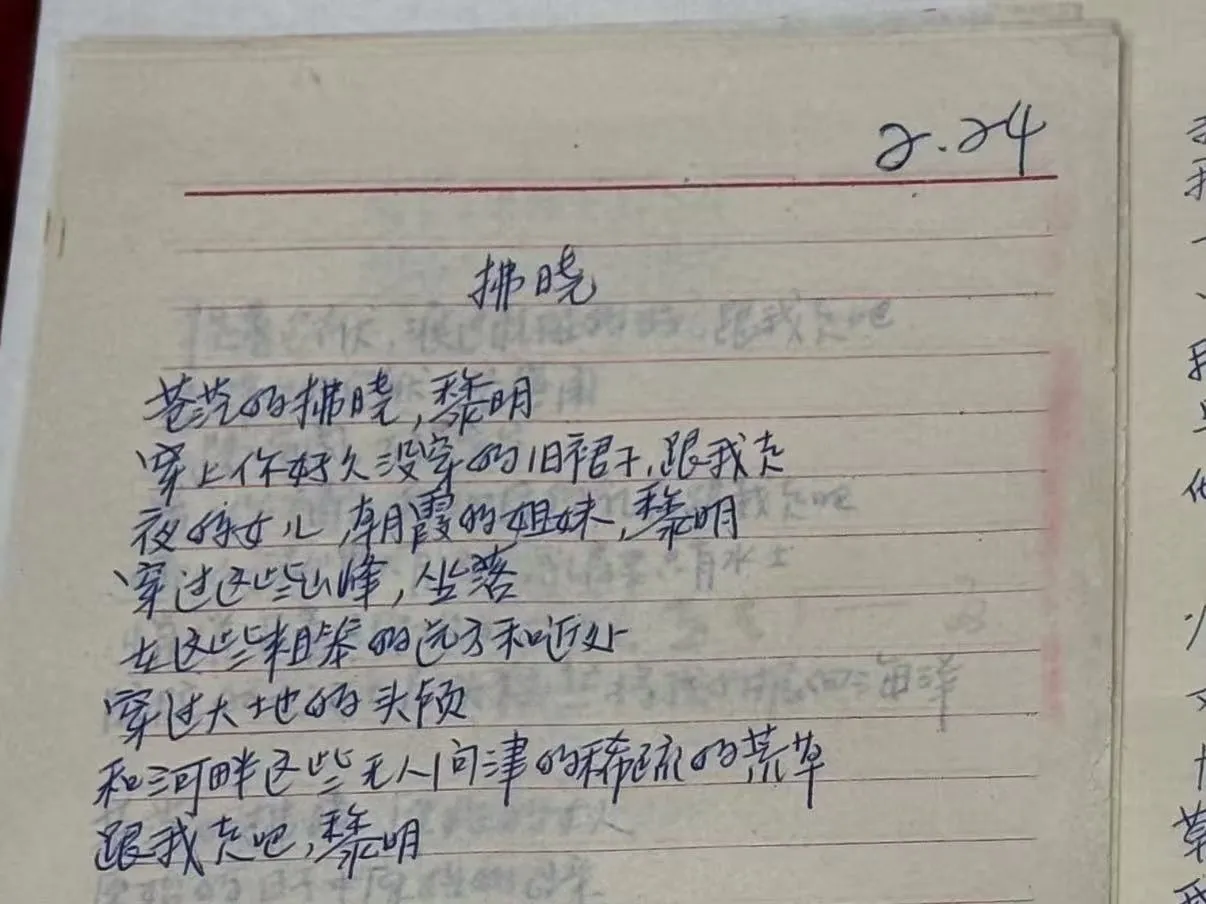 2.24
拂晓
苍茫的拂晓,黎明
穿上你好久没穿的旧裙子,跟我走
夜的女儿,朝霞的姐妹,黎明
穿过这些山峰,坐落
在这些粗笨的远方和近处
穿过大地的头颅
和河畔这些无人问津的稀疏的荒草
跟我走吧,黎明